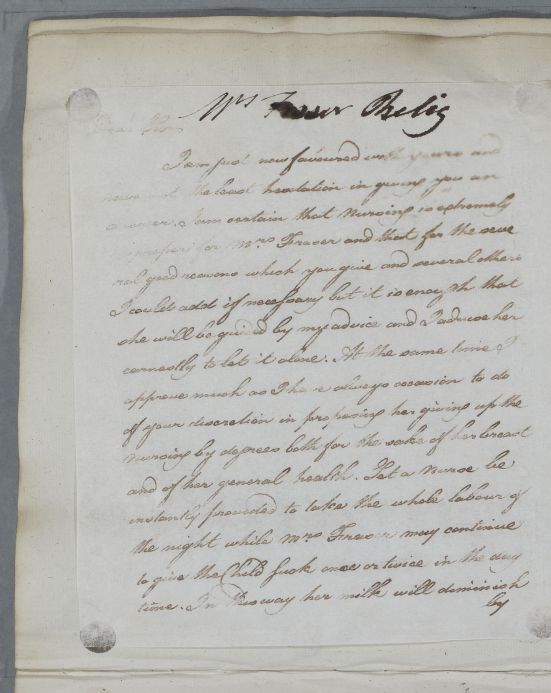 Mrs Fraser Phelig
Dear Sir,
I am just now favoured with yours and
have not the least hesitation in giving you an
answer. I am certain that Nursing is extremely
improper for Mrs Fraser and that for the seve
ral good reasons which you give and several others
I could add if necessary but it is enough that
she will be guided by my advice and I advise her
earnestly to let it alone. At the same time I
approve much as I have always occasion to do
of your discretion in proposing her giving up the
nursing by degrees both for the sake of her breast
and of her general health. Let a Nurse be
instantly provided to take the whole labour of
the night while Mrs Fraser may continue
to give the Child suck once or twice in the day
time. In this way her milk will diminish
by